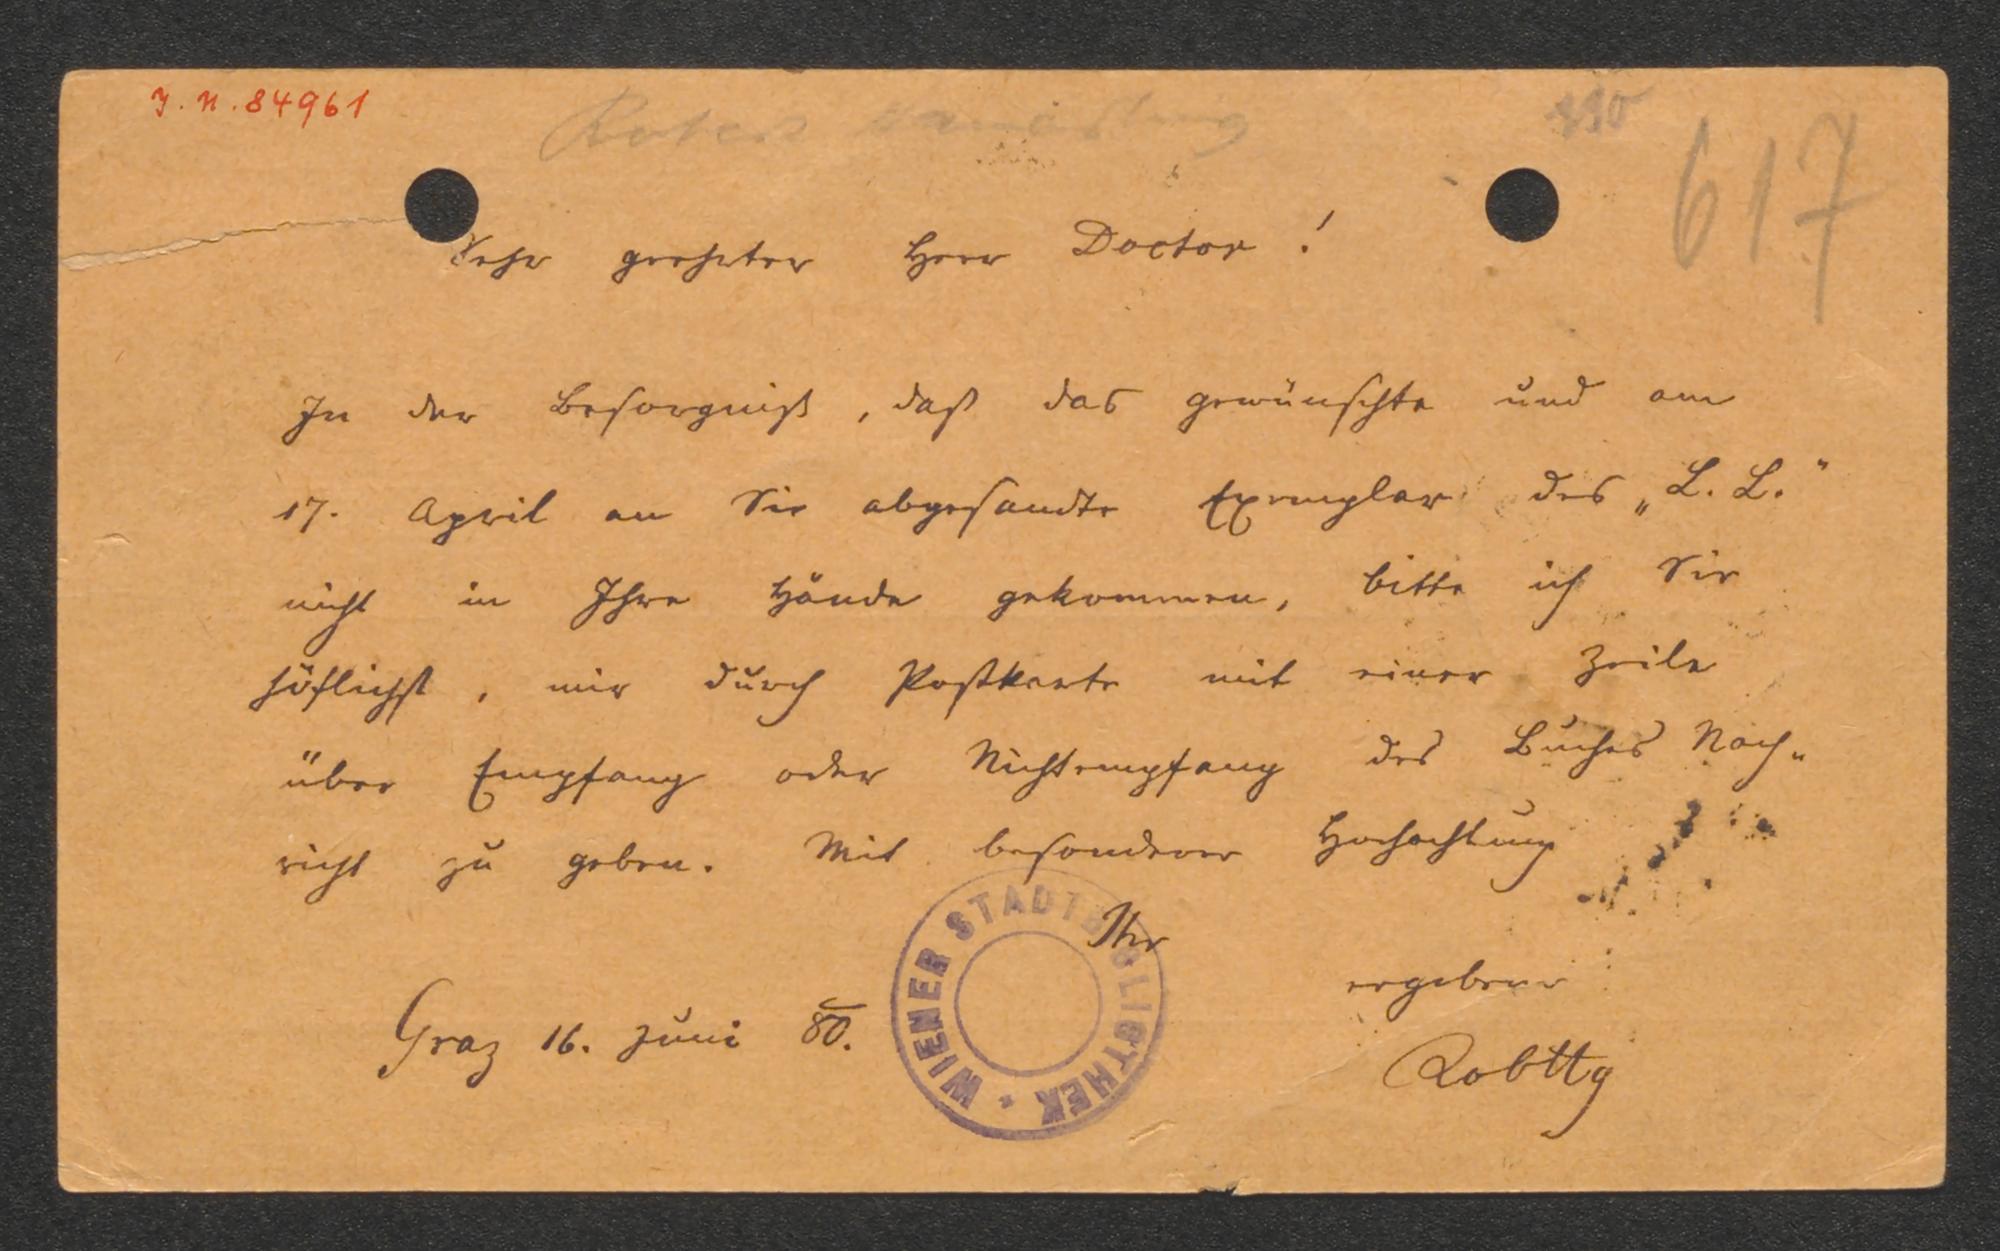 J. N. 84961
Robert Hamerling
617
Sehr geehrter Herr Doctor!
In der Besorgniß, daß das gewünschte und am
17. April an Sie abgesandte Exemplar des „L. L."
nicht in Ihre Hände gekommen, bitte ich Sie
höflichst, mir durch Postkarte mit einer Zeile
über Empfang oder Nichtempfang des Buches Nach-
richt zu geben. Mit besonderer Hochachtung
Ihr
ergebener
Graz 16. Juni 80.
WIENER STADTBIBLIOTHEK